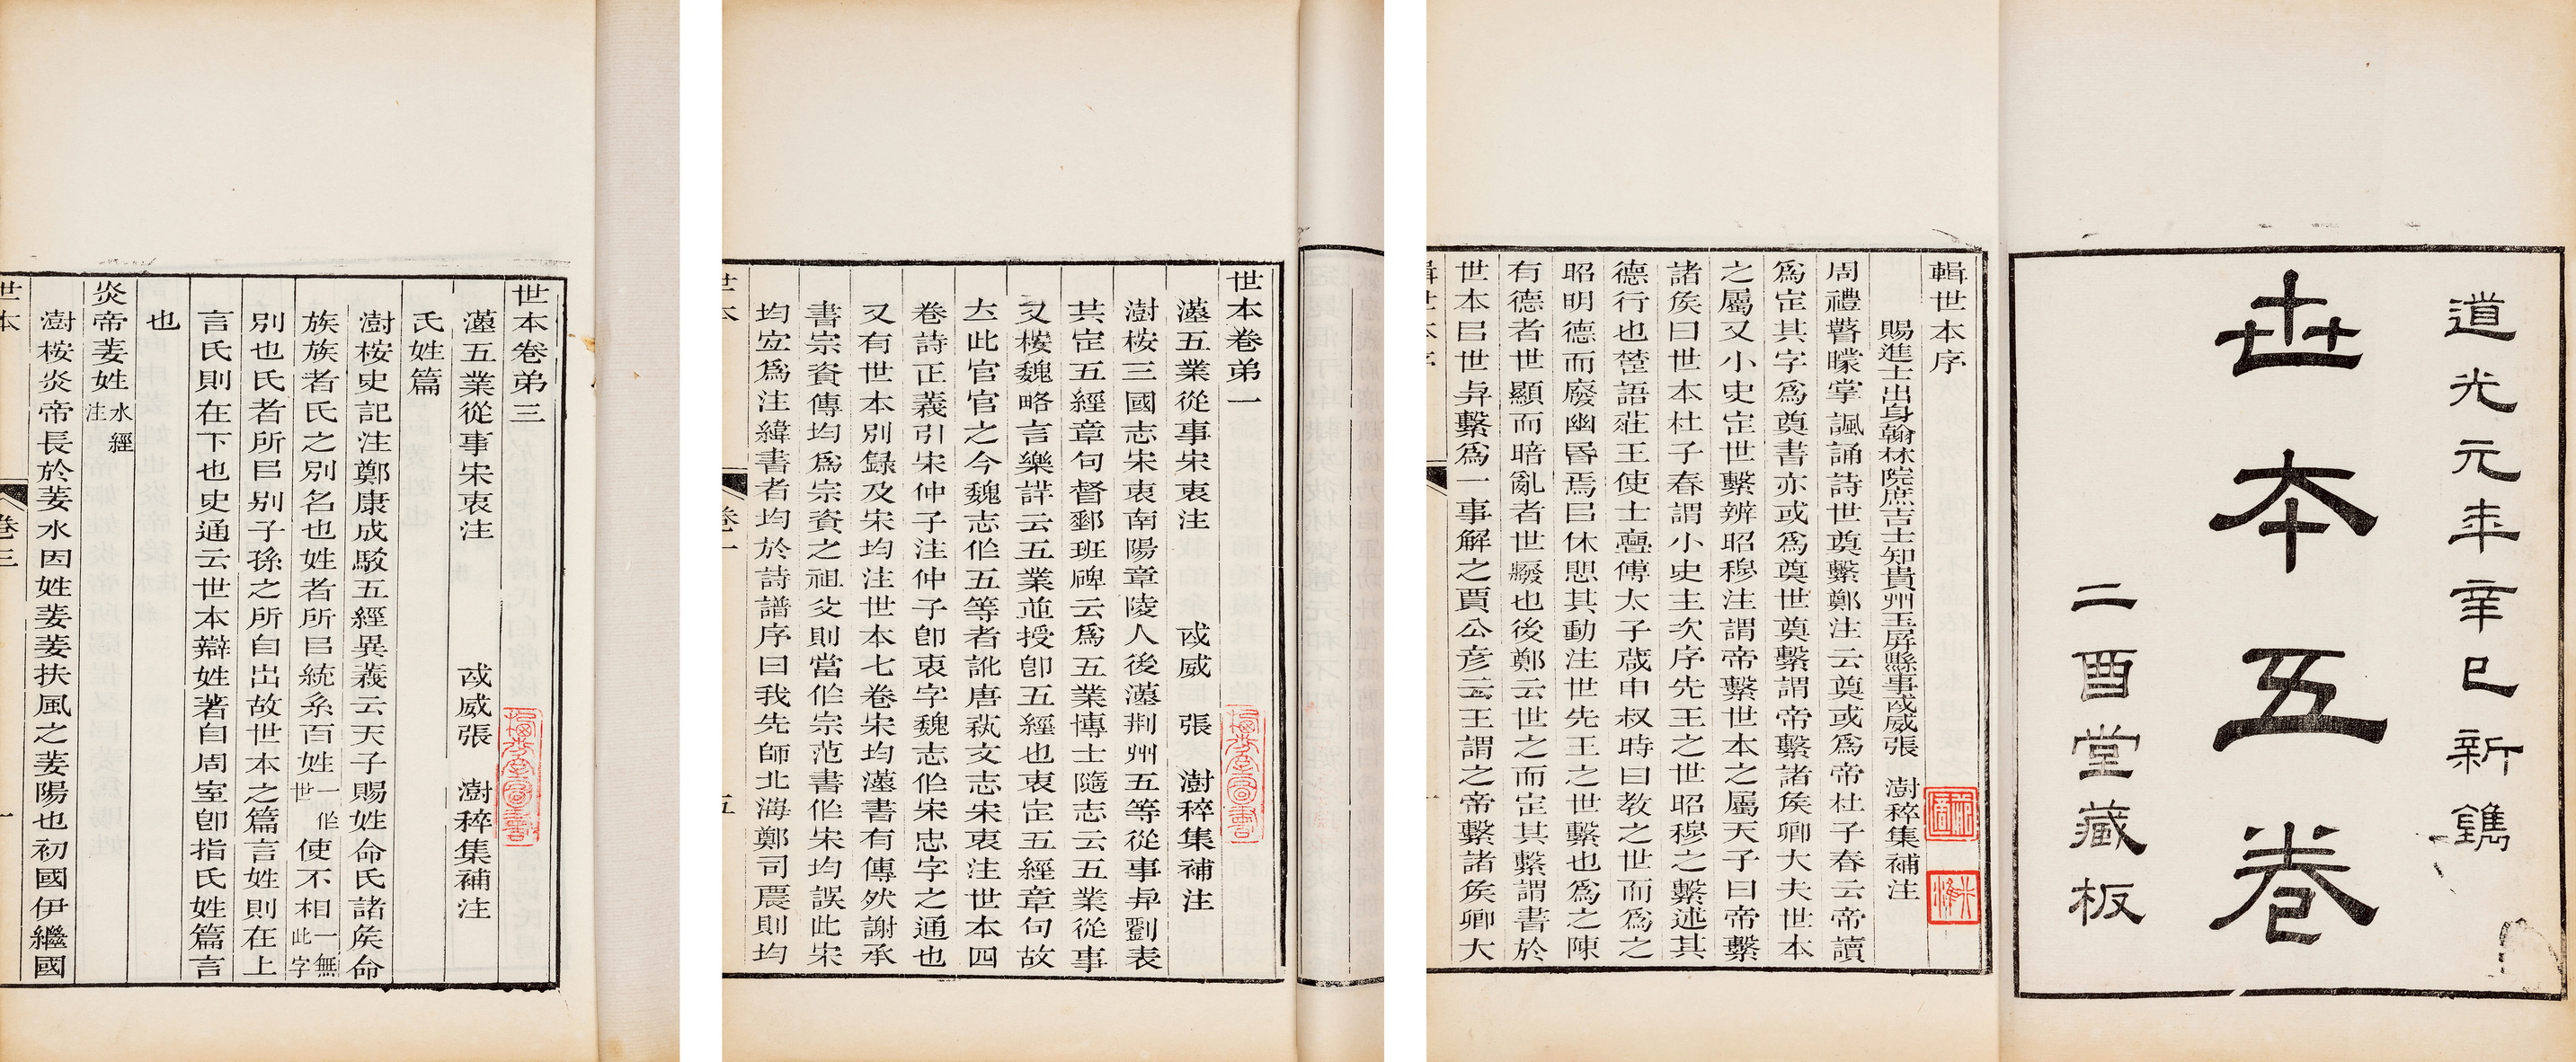 道光元年辛巳新鐫
世本五卷
二酉堂藏板
輯世本序
賜進士出身翰林院庶吉士知貴州玉屏縣事武威張 澍稡集補注
周禮瞽矇掌諷誦詩世奠繫鄭注云奠或爲帝杜子春云帝讀
爲定其字爲奠書亦或爲奠世奠繫謂帝繫諸矦卿大夫世本
之屬又小史定世繫辨昭穆注謂帝繫世本之屬天子曰帝繫
諸矦曰世本杜子春謂小史主次序先王之世昭穆之繫述其
德行也楚語莊王使士亹傅太子葴申叔時曰教之世而爲之
昭明德而廢幽昏焉㠯休思其動注世先王之世繫也爲之陳
有德者世顯而暗亂者世廢也後鄭云世之而定其繫謂書於
世本㠯世與繫爲一事解之賈公彦云王謂之帝繫諸矦卿大
世本卷弟一
漢五業從事宋衷注 武威 張 澍稡集補注
澍桉三國志宋衷南陽章陵人後漢荆州五等從事與劉表
共定五經章句督郵班碑云爲五業博士隨志云五業從事
又桉魏略言樂詳云五業並授卽五經也衷定五經章句故
在此官官之今魏志作五等者訛唐蓺文志宋衷注世本四
卷詩正義引宋仲子注仲子卽衷字魏志作宋忠字之通也
又有世本別錄及宋均注世本七卷宋均漢書有傳然謝承
書宗資傳均爲宗資之祖父則當作宗范書作宋均誤此宋
均定爲注緯書者均於詩譜序曰我先師北海鄭司農則均
世本 卷一 五
世本卷弟三
漢五業從事宋衷注 武威張 澍稡集補注
氏姓篇
澍桉史記注鄭康成駁五經異義云天子賜姓命氏諸矦命
族族者氏之別名也姓者所㠯統系百姓一作世使不相一無此字
別也氏者所㠯別子孫之所自出故世本之篇言姓則在上
言氏則在下也史通云世本辯姓著自周室卽指氏姓篇言
也
炎帝姜姓水經注
澍桉炎帝長於姜水因姓姜姜扶風之姜陽也初國伊繼國
世本 卷三 一